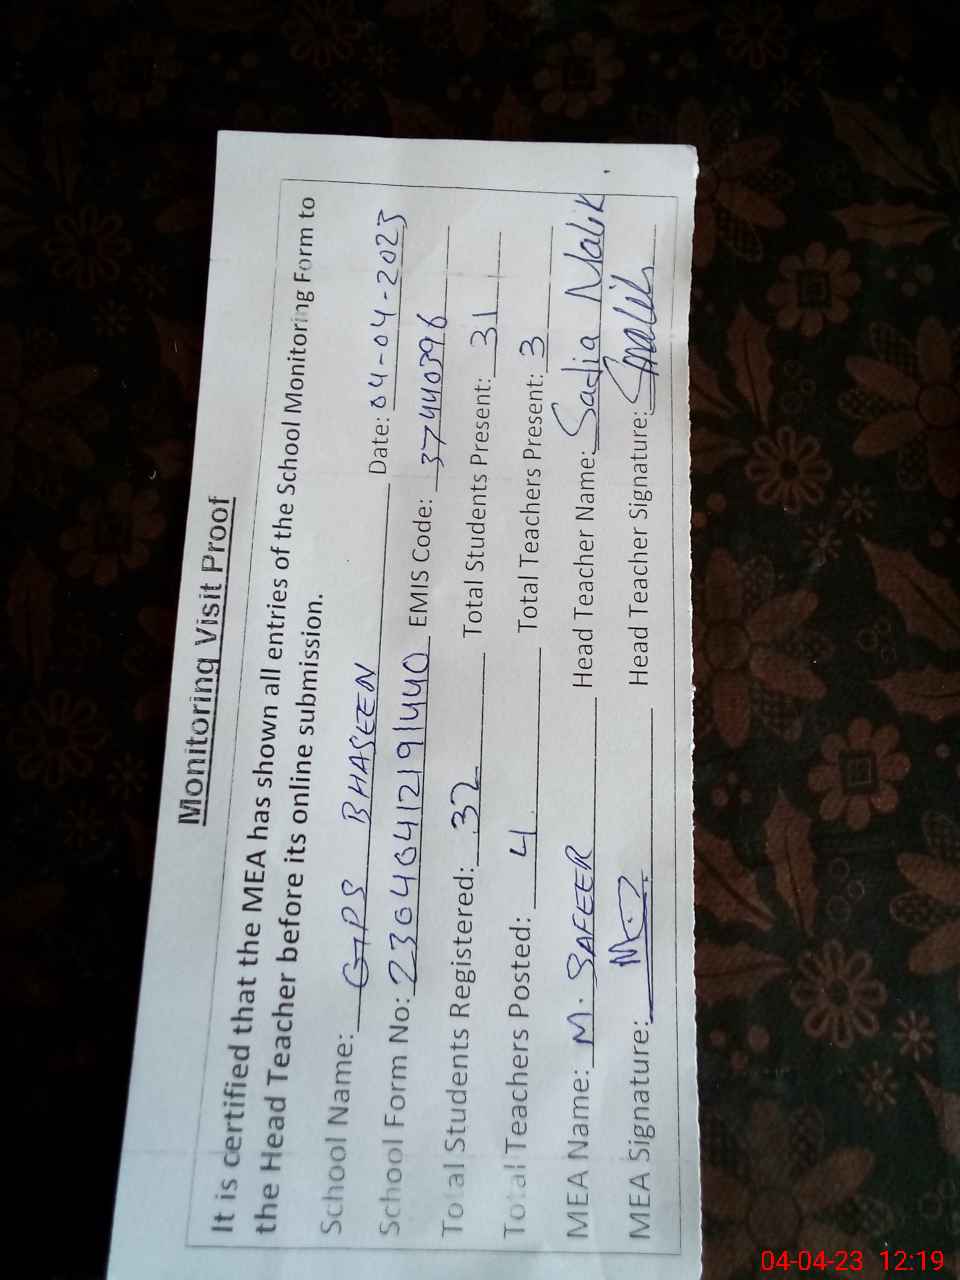 Monitoring Visit Proof
It is certified that the MEA has shown all entries of the School Monitoring Form to
the Head Teacher before its online submission.
School Name: GPS BHASEEN Date: 04-04-2023
School Form No: 23040412191440 EMIS Code: 37440396
Total Students Registered: 32 Total Students Present: 31
Total Teachers Posted: 4 Total Teachers Present: 3
MEA Name: M. SAFEER Head Teacher Name: Sadia Malik
MEA Signature: Head Teacher Signature: Smalik
04-04-23 12:19